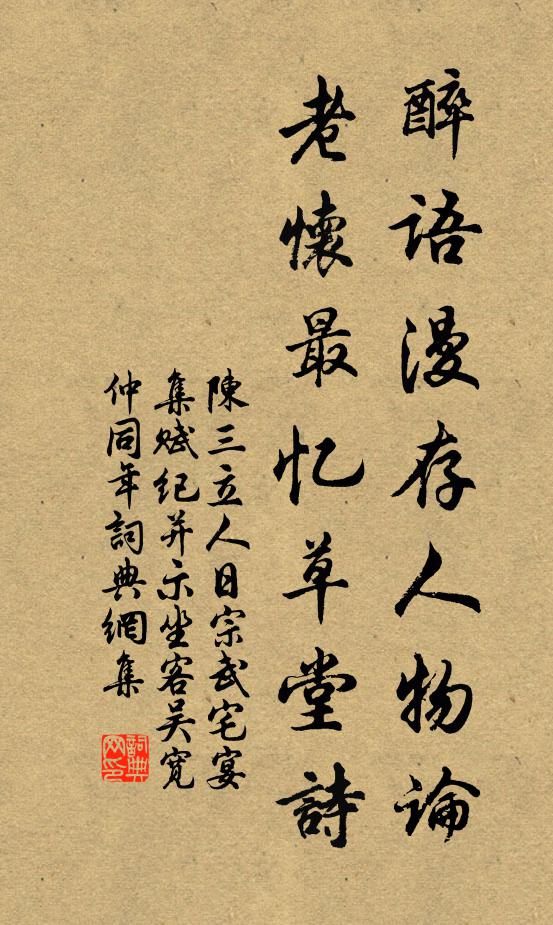 醉语漫存人物論
老懷最忆草堂詩
陳三立人日宗武宅宴
集賦紀并示坐客吴寬
仲同年詞典網集
詞典网印